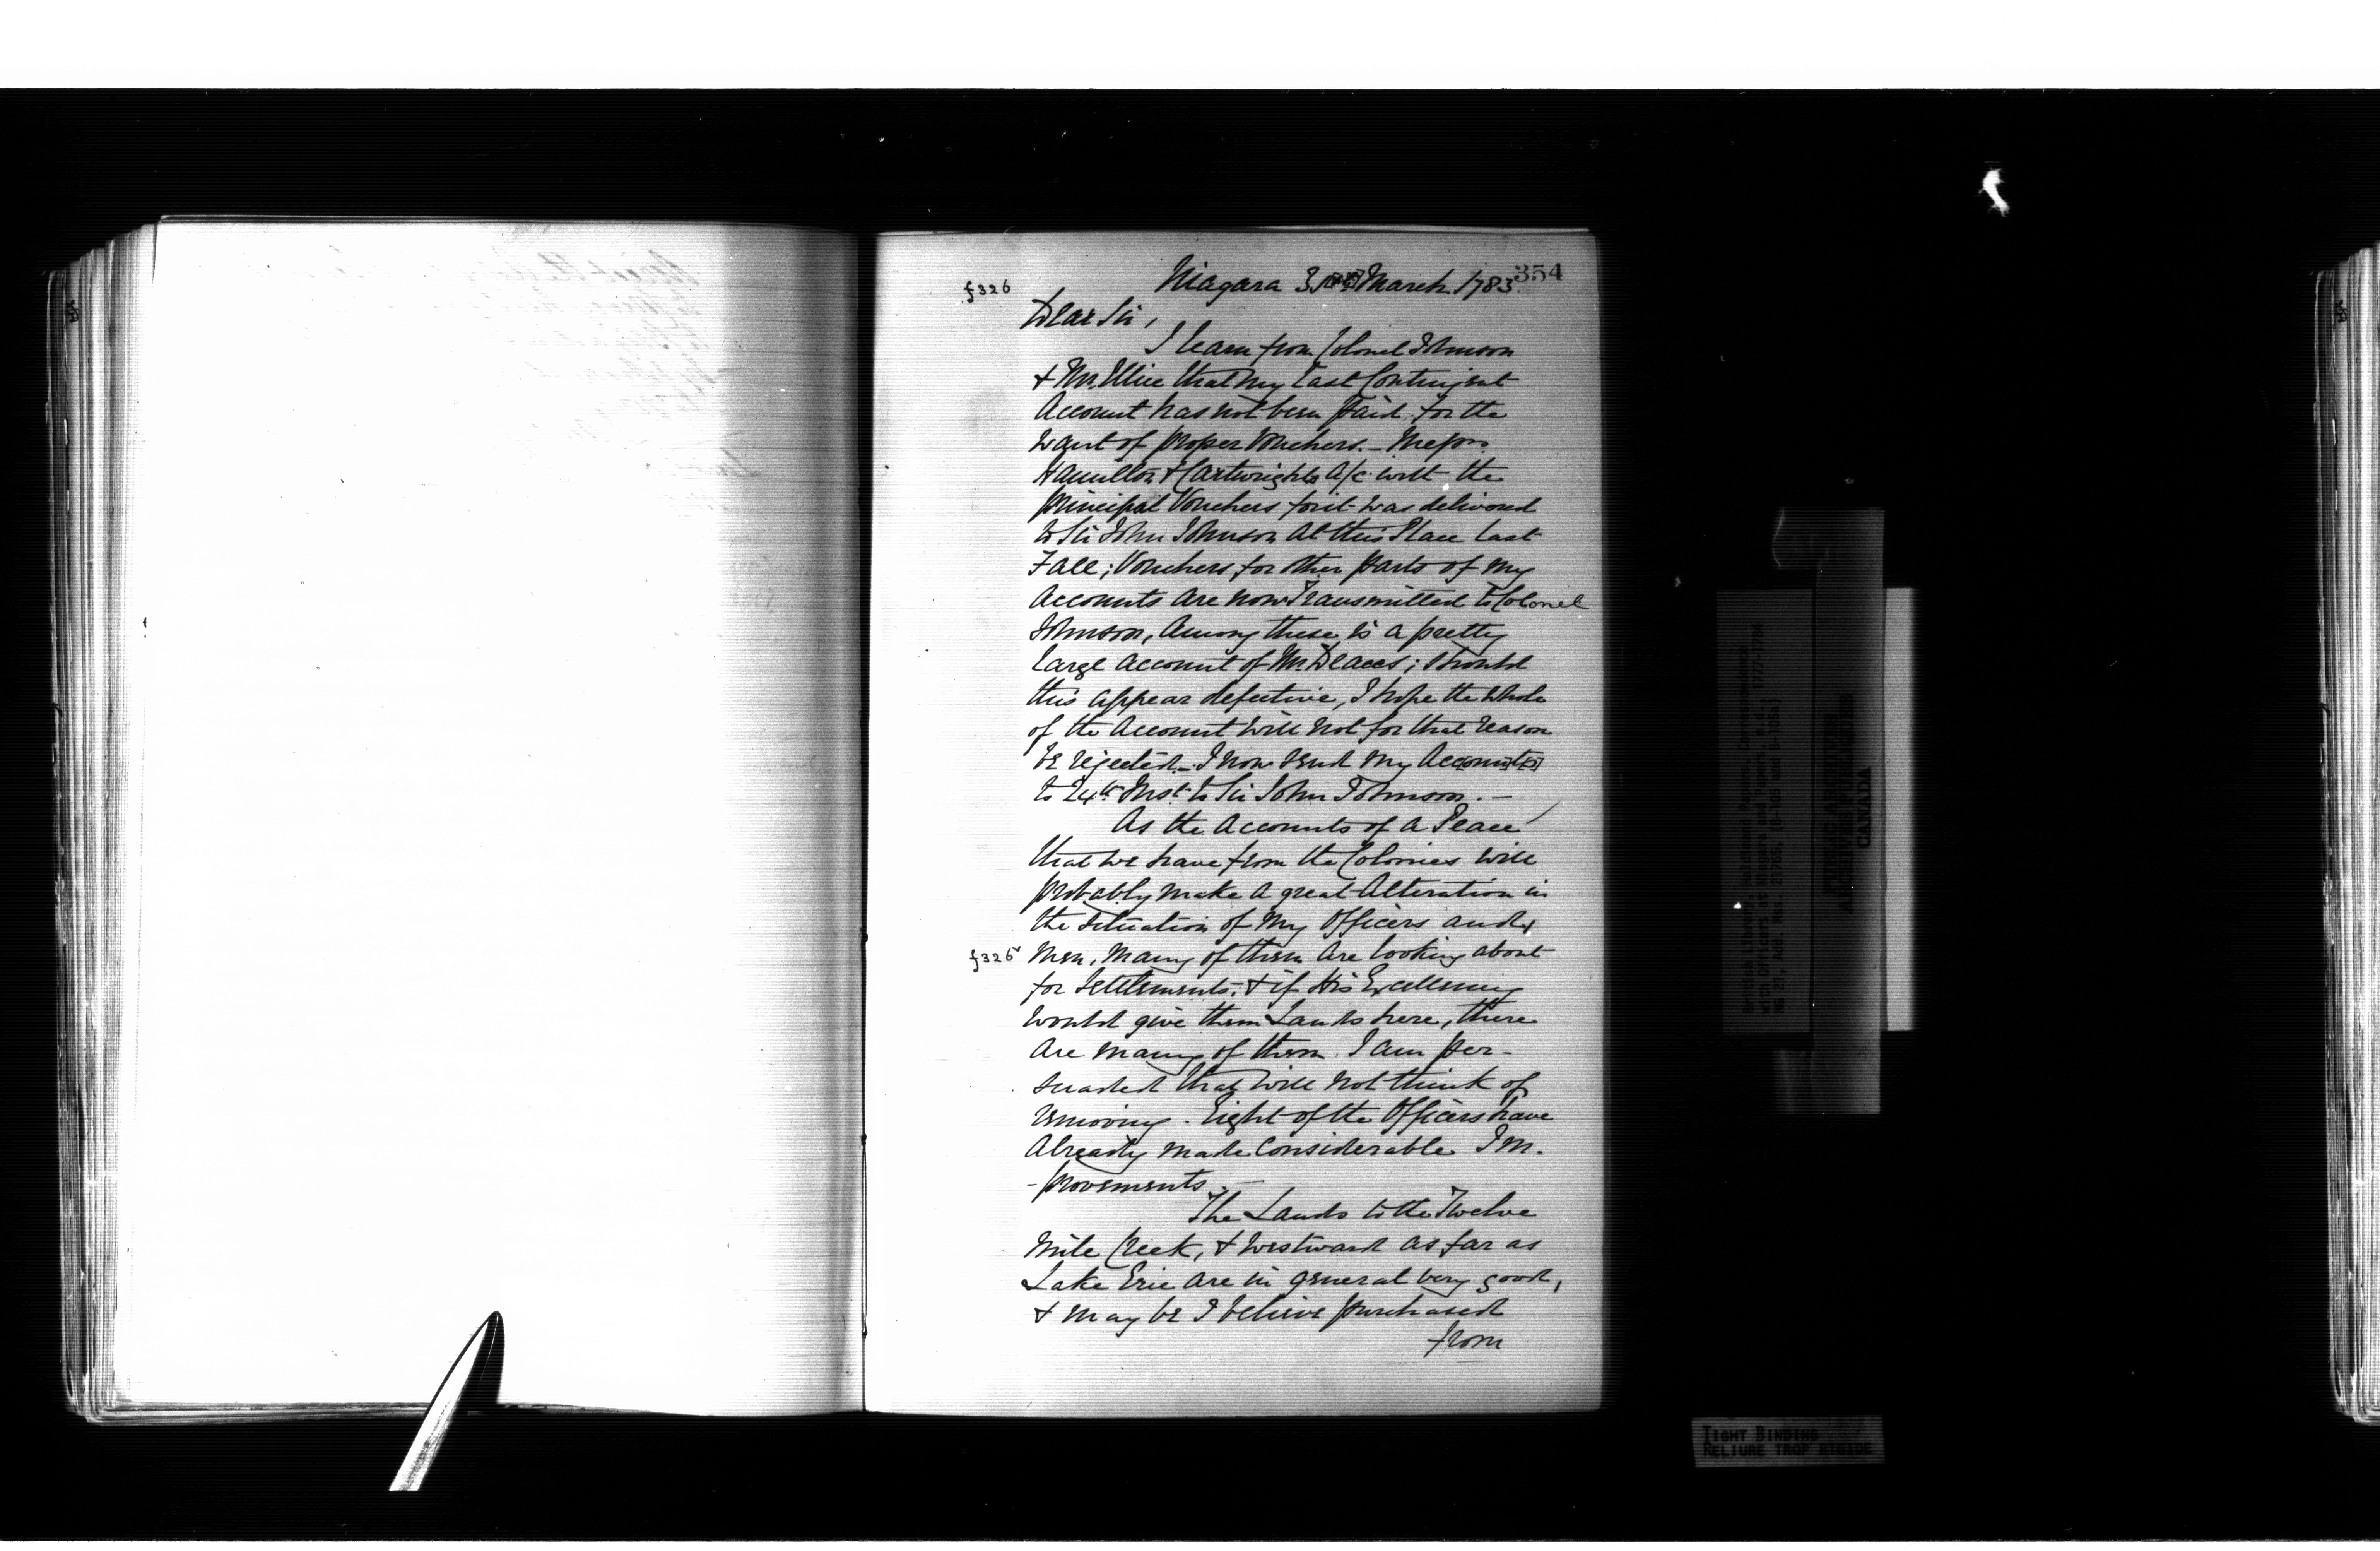 354
f326
Niagara 3 March 1783.
Dear Sir,
I learn from Colonel Johnson
& Mr. Ellice that my last Contingent
Account has not been paid for the
want of proper Vouchers. - Messrs.
Hamilton & Cartwrights a/c with the
principal Vouchers for it was delivered
to Sir John Johnson at this Place last
Fall; Vouchers for other parts of my
Accounts are now Transmitted to Colonel
Johnson, Among these is a pretty
large account of Mr. ; should
this appear defective, I hope the whole
of the Account will not for that reason
be rejected. - I now send my Accounts
to 24th Inst. to Sir John Johnson. -
As the Accounts of a Peace
that we have from the Colonies will
probably make a great Alteration in
the situation of my Officers and
f326
Men, Many of them are looking about
for Settlements, & if His Excellency
would give them Lands here, there
are many of them I am per-
suaded that will not think of
removing. Eight of the Officers have
Already made Considerable Im.
-provements. -
The Lands to the Twelve
Mile Creek, & westward as far as
Lake Erie are in general very good,
& may be I believe purchased
from
British Library, Haldimand Papers, Correspondence
with Officers at Niagara and Papers, n.d., 1777-1784
MG 21, Add. Mss. 21765, (B-105 and B-105a)
PUBLIC ARCHIVES
ARCHIVES PUBLIQUES
CANADA
TIGHT BINDING
RELIURE TROP RIGIDE